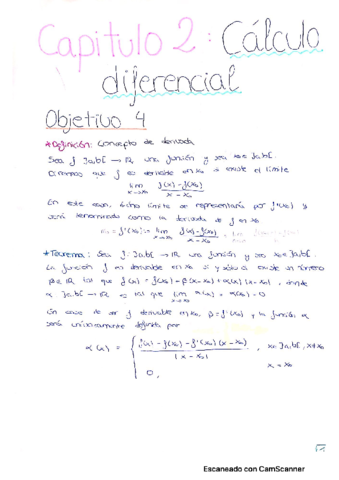 Capitulo 2: Cálculo
diferencial
Objetivo 4
*Definición: Concepto de derivada
Sea f: ]a,b[ → ℝ, una función y sea x₀∈]a,b[.
Diremos que f es derivable en x₀ si existe el límite
lim x→x₀ (f(x)-f(x₀))/(x-x₀)
En este caso, dicho límite se representaría por f'(x₀) y
será denominado como la derivada de f en x₀
f'(x₀) = lim x→x₀ (f(x)-f(x₀))/(x-x₀)
*Teorema: Sea f: ]a,b[ → ℝ una función y sea x₀∈]a,b[.
La función f es derivable en x₀ si y sólo si existe un número
β∈ℝ tal que f(x) = f(x₀) + β(x-x₀) + α(x)(x-x₀), donde
α ]a,b[ → ℝ es tal que lim x→x₀ α(x) = α(x₀) = 0
En caso de ser f derivable en x₀, β=f'(x₀) y la función α
será únicamente definida por
α(x) = { (f(x)-f(x₀)-f'(x₀)(x-x₀))/(x-x₀) , x∈]a,b[, x≠x₀
0, x=x₀
Escaneado con CamScanner